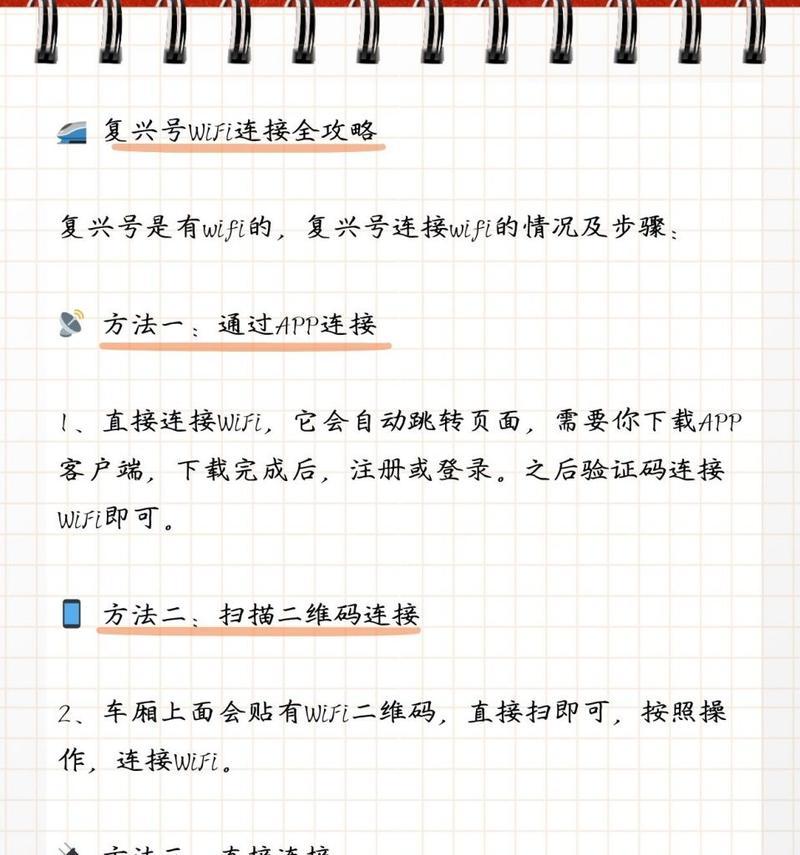 复兴号WiFi连接全攻略
复兴号是有wifi的，复兴号连接wifi的情况及步骤：
方法一：通过APP连接
1、直接连接WiFi，它会自动跳转页面，需要你下载APP
客户端，下载完成后，注册或登录。之后验证码连接
WiFi即可。
方法二：扫描二维码连接
2、车厢上面会贴有WiFi二维码，直接扫即可，按照操
作，连接WiFi。